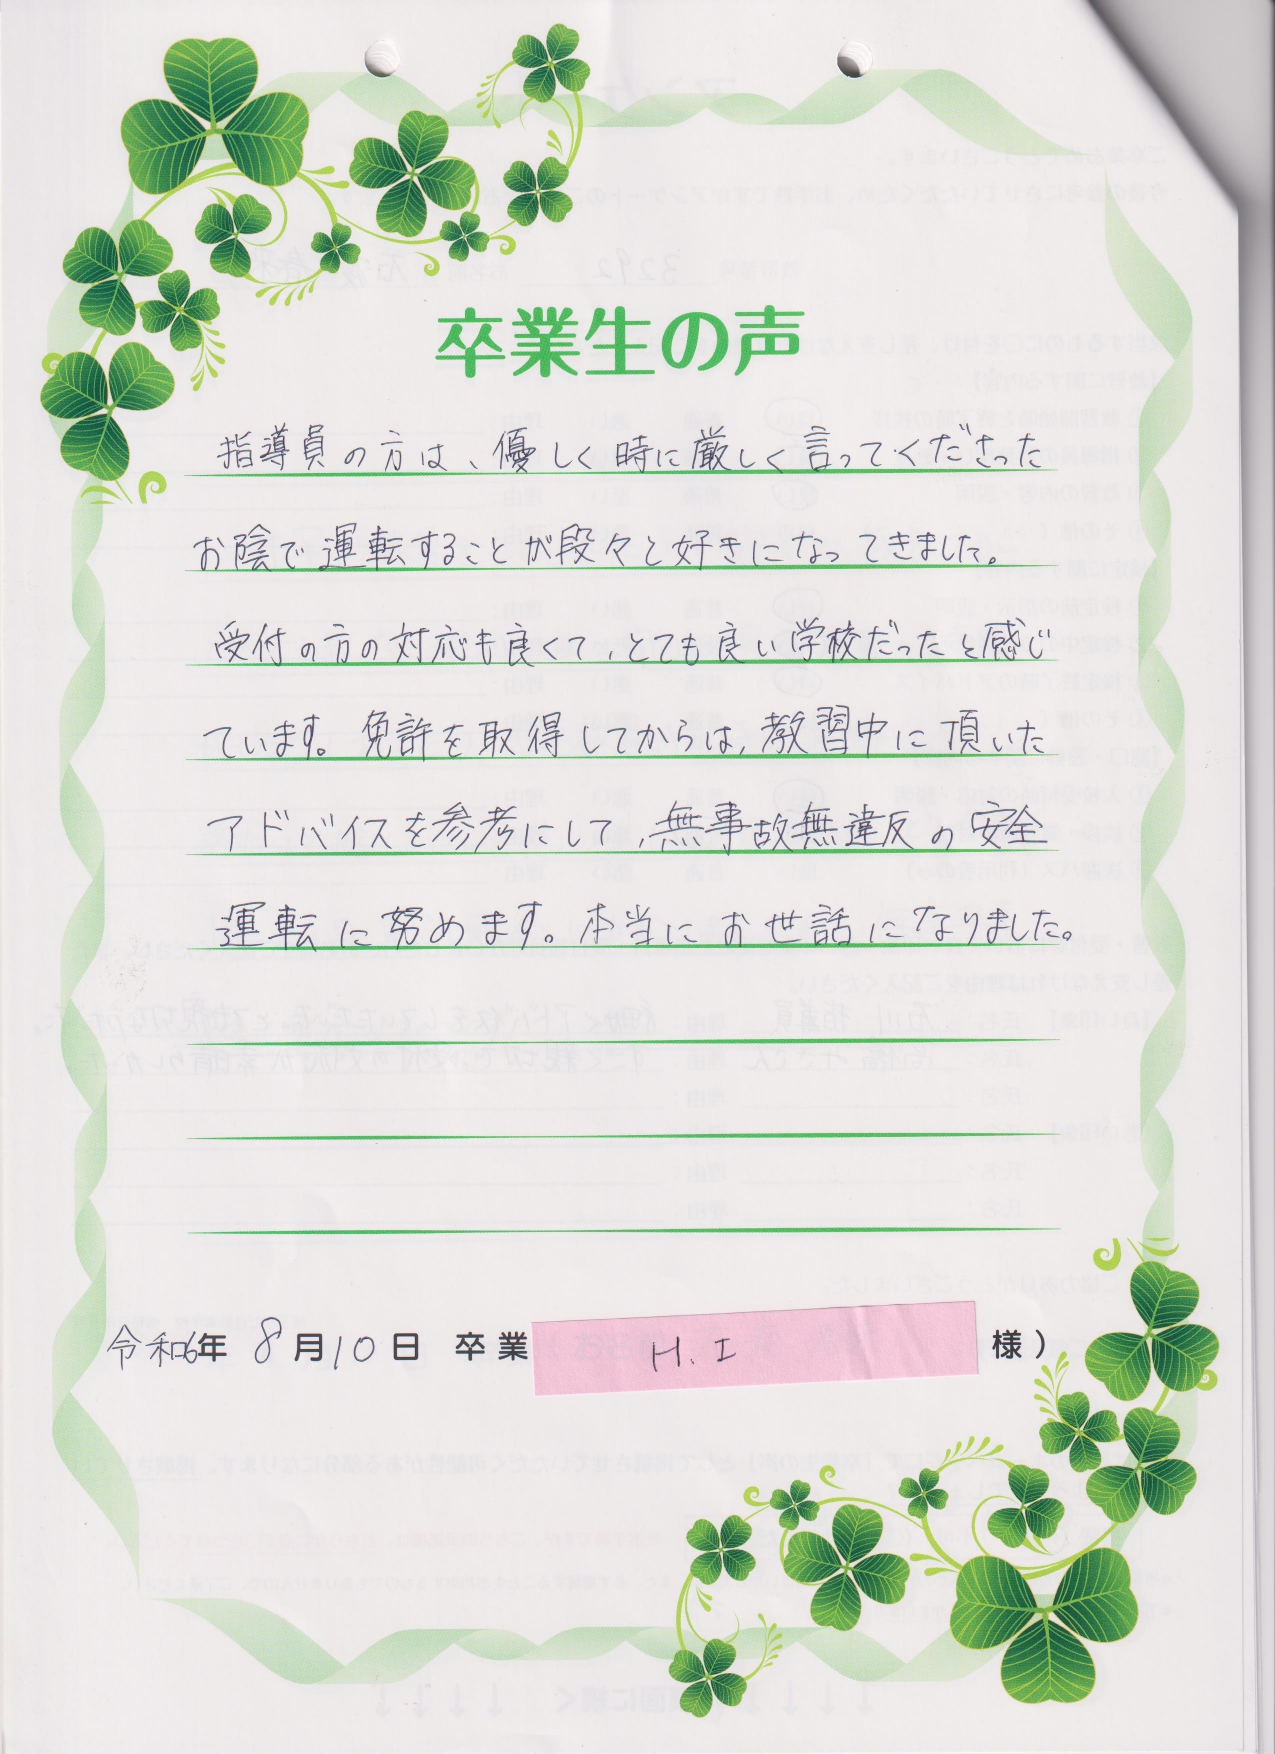 卒業生の声
指導員の方は、優しく時に厳しく言ってくださった
お陰で運転することが段々と好きになってきました。
受付の方の対応も良くて、とても良い学校だったと感じ
ています。免許を取得してからは、教習中に頂いた
アドバイスを参考にして、無事故無違反の安全
運転に努めます。本当にお世話になりました。
令和6年 8月10日 卒業 H.I 様)